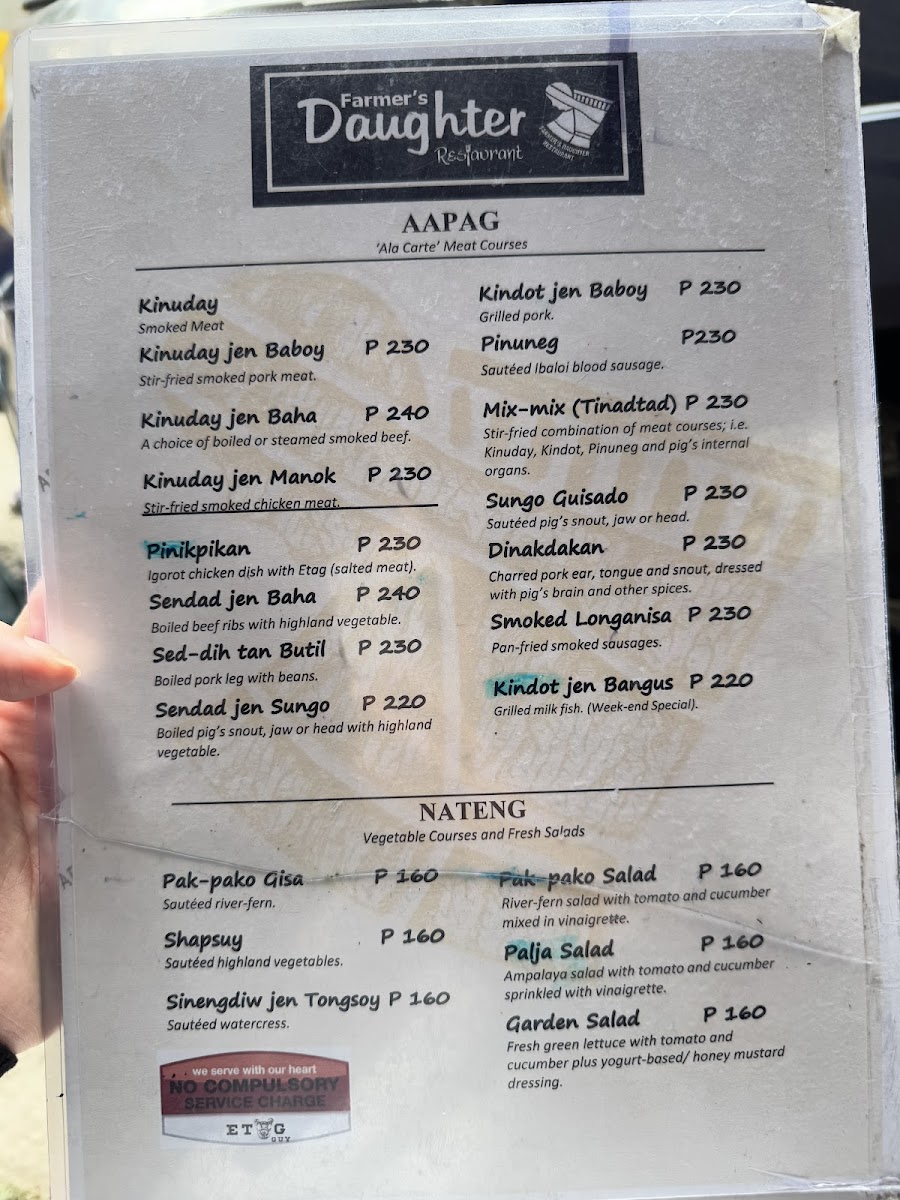 Farmer's
Daughter
Restaurant
FARMER'S DAUGHTER
RESTAURANT
AAPAG
'Ala Carte' Meat Courses
Kinuday
Smoked Meat
Kinuday jen Baboy P 230
Stir-fried smoked pork meat.
Kinuday jen Baha P 240
A choice of boiled or steamed smoked beef.
Kinuday jen Manok P 230
Stir-fried smoked chicken meat.
Pinikpikan P 230
Igorot chicken dish with Etag (salted meat).
Sendad jen Baha P 240
Boiled beef ribs with highland vegetable.
Sed-dih tan Butil P 230
Boiled pork leg with beans.
Sendad jen Sungo P 220
Boiled pig's snout, jaw or head with highland
vegetable.
Kindot jen Baboy P 230
Grilled pork.
Pinuneg P230
Sautéed Ibaloi blood sausage.
Mix-mix (Tinadtad) P 230
Stir-fried combination of meat courses; i.e.
Kinuday, Kindot, Pinuneg and pig's internal
organs.
Sungo Guisado P 230
Sautéed pig's snout, jaw or head.
Dinakdakan P 230
Charred pork ear, tongue and snout, dressed
with pig's brain and other spices.
Smoked Longanisa P 230
Pan-fried smoked sausages.
Kindot jen Bangus P 220
Grilled milk fish. (Week-end Special).
NATENG
Vegetable Courses and Fresh Salads
Pak-pako Gisa P 160
Sautéed river-fern.
Shapsuy P 160
Sautéed highland vegetables.
Sinengdiw jen Tongsoy P 160
Sautéed watercress.
Pak-pako Salad P 160
River-fern salad with tomato and cucumber
mixed in vinaigrette.
Palja Salad P 160
Ampalaya salad with tomato and cucumber
sprinkled with vinaigrette.
Garden Salad P 160
Fresh green lettuce with tomato and
cucumber plus yogurt-based/ honey mustard
dressing.
we serve with our heart
NO COMPULSORY
SERVICE CHARGE
ETAG
GUY